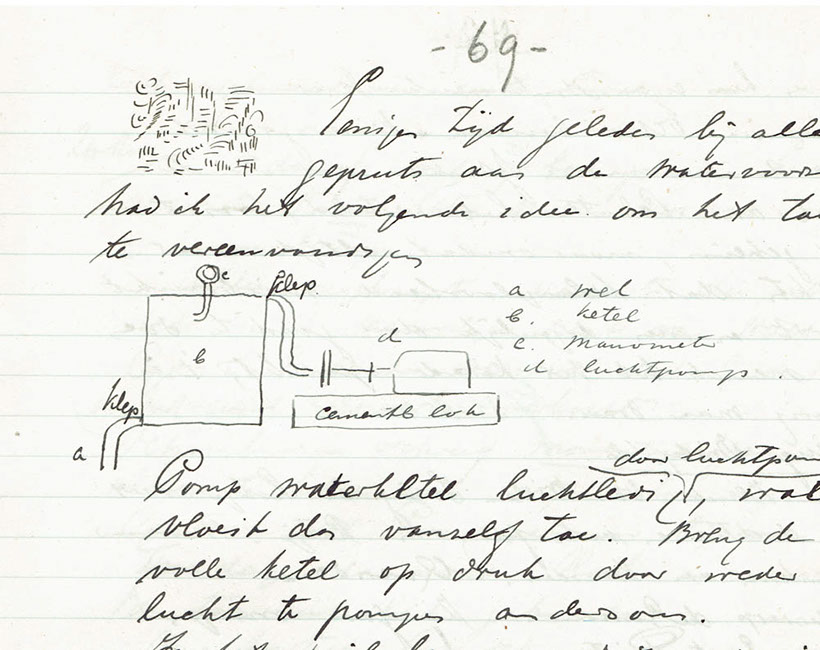 - 69 -
Eenige tijd geleden bij alle
gepruts aan de watervoor
had ik het volgende idee om het
te vereenvoudigen
c
klep.
a wel
b. ketel
c. manometer
d luchtpomp.
d
b
klep
cementblok
a
door luchtpom
Pomp waterketel luchtledig, wat
vloeit dan vanzelf toe. Breng de
volle ketel op druk door weder
lucht te pompen andersom.